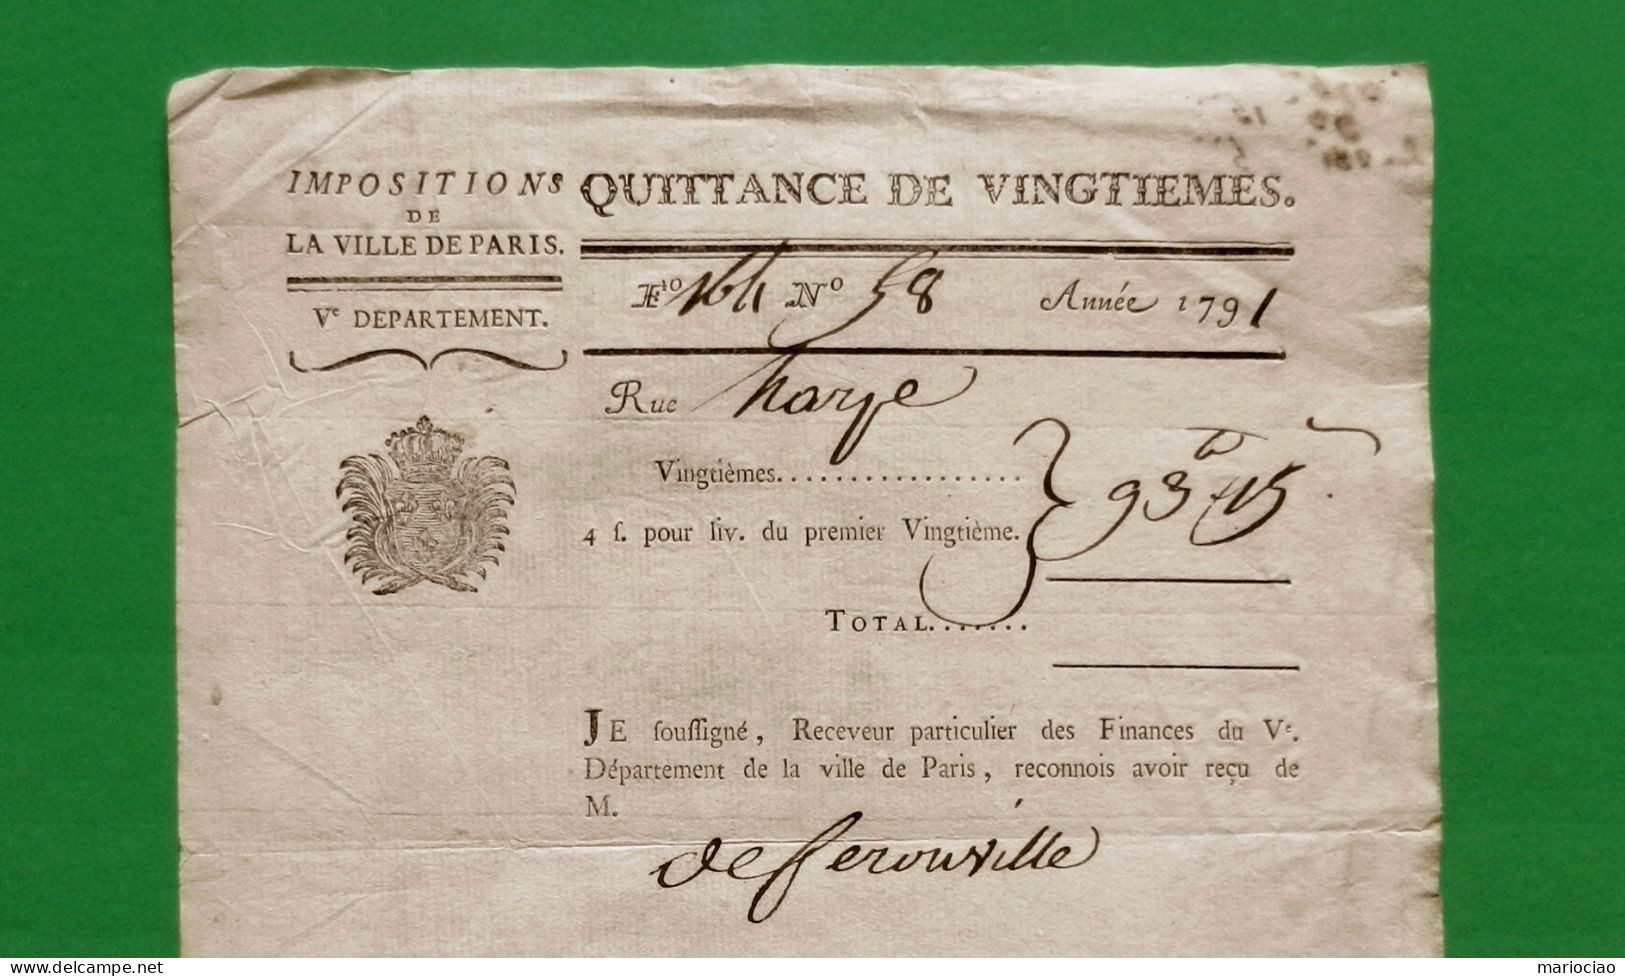 IMPOSITIONS
DE
LA VILLE DE PARIS.
Vᵉ DEPARTEMENT.
QUITTANCE DE VINGTIEMES.
Fⁱᵒ 164 Nᵒ 58 Année 1791
Rue harpe
Vingtièmes..................
4 ſ. pour liv. du premier Vingtième.
93ᵗᵗ 15
TOTAL.......
JE ſouſſigné, Receveur particulier des Finances du Vᵉ.
Département de la ville de Paris, reconnois avoir reçu de
M.
de ferouville
mariociao